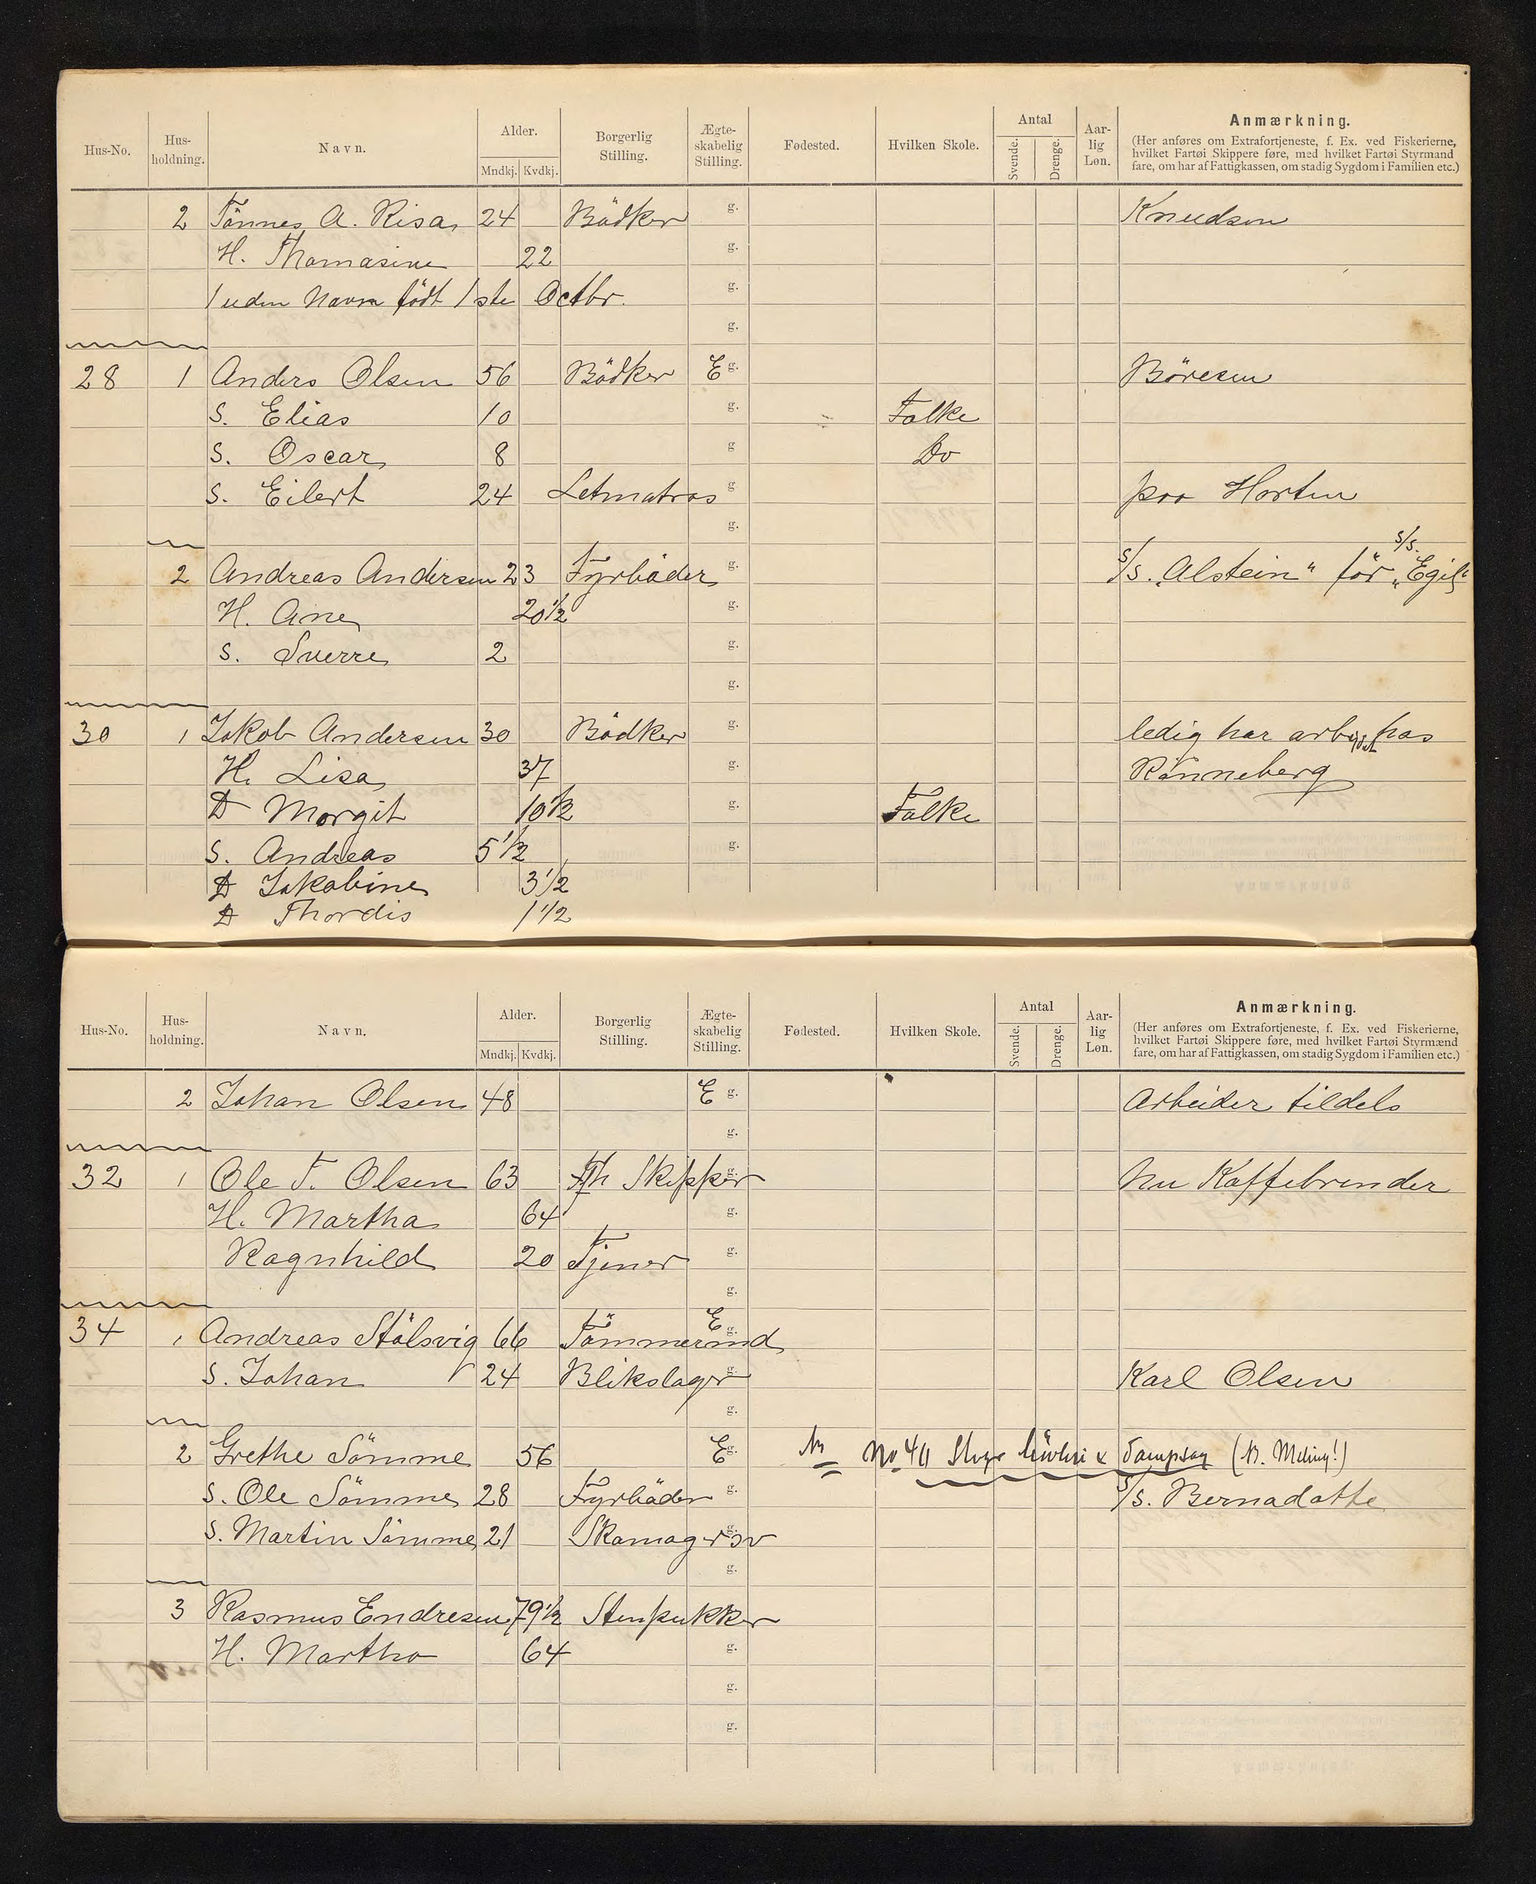 Hus-No. Hus-holdning. Navn. Alder. Mndkj. Kvdkj. Borgerlig Stilling. Ægte-skabelig Stilling. Fødested. Hvilken Skole. Antal Svende. Drenge. Aar-lig Løn. Anmærkning.
(Her anføres om Extrafortjeneste, f. Ex. ved Fiskerierne,
hvilket Fartøi Skippere føre, med hvilket Fartøi Styrmand
fare, om har af Fattigkassen, om stadig Sygdom i Familien etc.)
2 Tönnes A. Risa 24 Bödker g. Knudsen
H. Thomasine 22 g.
1 uden Navn födt 1ste Octbr. g.
g.
28 1 Anders Olsen 56 Bödker E g. Böresen
S. Elias 10 g. Falke
S. Oscar 8 g Do
S. Eilert 24 Letmatros g paa Horten
g.
2 Andreas Andersen 23 Fyrböder g. S/S. „Alstein" för S/S. „Egil"
H. Ane 20 1/2 g.
S. Sverre 2 g.
g.
30 1 Jakob Andersen 30 Bödker g. ledig har arbeidet hos
H. Lisa 37 g. Rönneberg
D Morgit 10 1/2 g. Falke
S. Andreas 5 1/2 g.
D Jakobine 3 1/2
D Thordis 1 1/2
Hus-No. Hus-holdning. Navn. Alder. Mndkj. Kvdkj. Borgerlig Stilling. Ægte-skabelig Stilling. Fødested. Hvilken Skole. Antal Svende. Drenge. Aar-lig Løn. Anmærkning.
(Her anføres om Extrafortjeneste, f. Ex. ved Fiskerierne,
hvilket Fartøi Skippere føre, med hvilket Fartøi Styrmænd
fare, om har af Fattigkassen, om stadig Sygdom i Familien etc.)
2 Johan Olsen 48 E g. Arbeider tildels
g.
32 1 Ole T. Olsen 63 Skipper g. Nu Kaffebrender
H. Martha 64 g.
Ragnhild 20 Tjener g.
g.
34 1 Andreas Stölsvig 66 Tömmermd E g.
S. Johan 24 Blikslager g. Karl Olsen
g.
2 Grethe Sömme 56 E g. No 40 Dampsag
S. Ole Sömme 28 Fyrböder g. S/S. Bernadotte
S. Martin Sömme 21 Skomagersv g.
g.
3 Rasmus Endresen 79 1/2 Stenpukker
H. Martha 64 g.
g.
g.